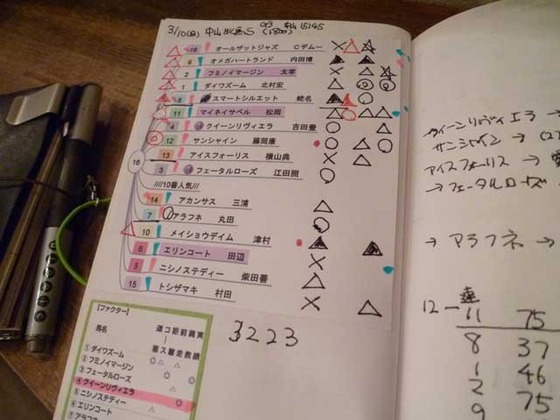 3/10(日) 中山牝馬S
16 オールザットジャズ Cデムー
6 オメガハートランド 内田博
2 フミノイマージン 太宰
1 ダイワズーム 北村宏
8 スマートシルエット 蛯名
11 マイネイサベル 松岡
4 クイーンリヴィエラ 吉田豊
12 サンシャイン 藤岡康
13 アイスフォーリス 横山典
3 フェータルローズ 江田照
16
///10番人気///
14 アカンサス 三浦
7 アラフネ 丸田
10 メイショウデイム 津村
6 エリンコート 田辺
5 ニシノステディー 柴田善
15 トシザマキ 村田
3223
【ファクター】
馬名
①ダイワズーム
②フミノイマージン
③フェータルローズ
④クイーンリヴィエラ
⑤ニシノステディー
⑥エリンコート
⑦アラフネ
クイーンリヴィエラ→
サンシャイン→
アイスフォーリス→
→フェータルローズ
→アラフネ→
12-
11 75
8 37
1 46
2 75
9